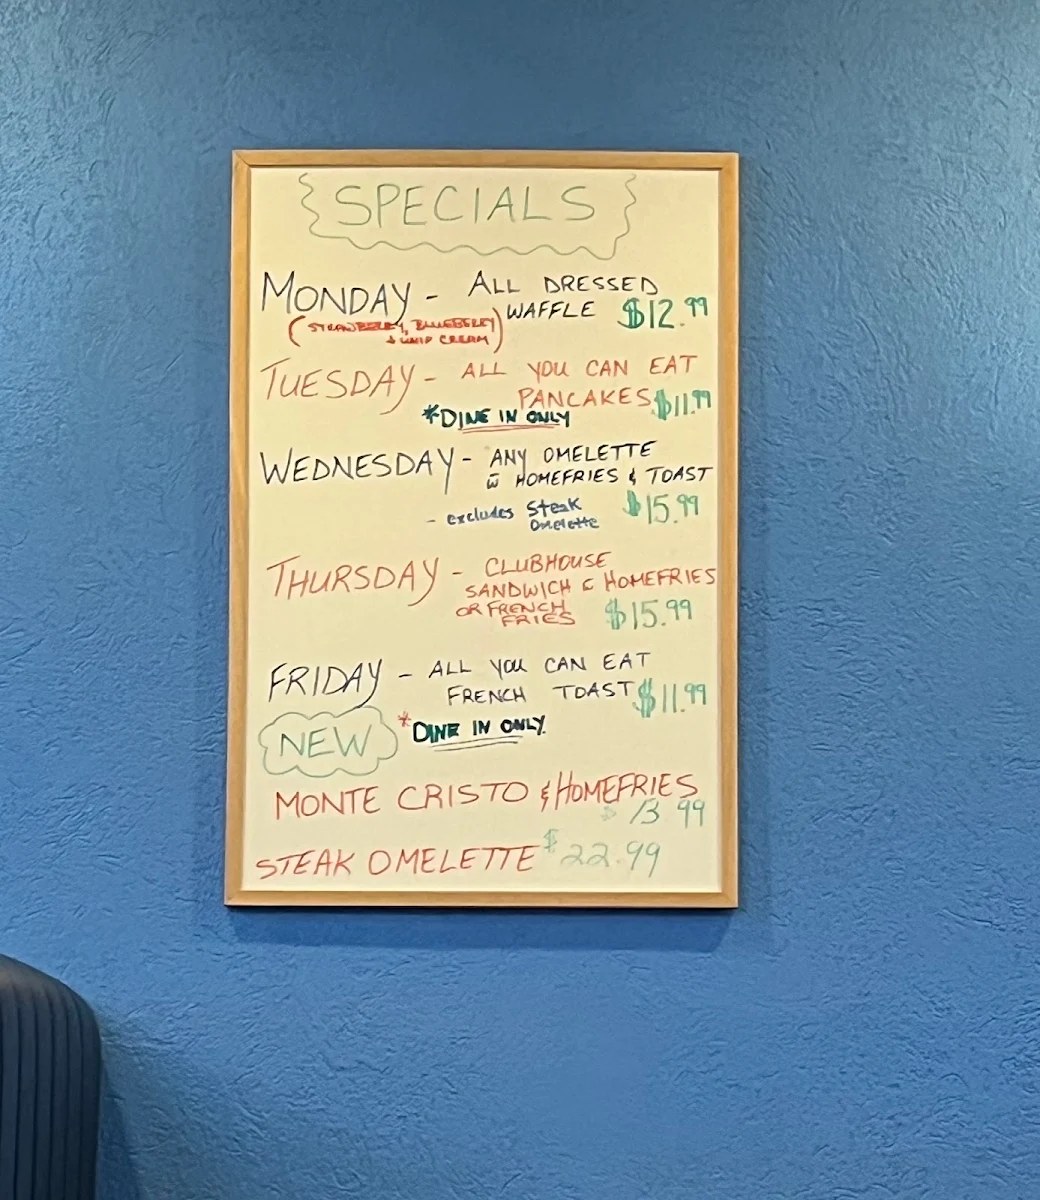 SPECIALS
MONDAY - ALL DRESSED
WAFFLE $12.99
(STRAWBERRY, BLUEBERRY
+ WHIP CREAM)
TUESDAY - ALL YOU CAN EAT
PANCAKES $11.99
*DINE IN ONLY
WEDNESDAY - ANY OMELETTE
w̅ HOMEFRIES & TOAST
- excludes Steak $15.99
Omelette
THURSDAY - CLUBHOUSE
SANDWICH & HOMEFRIES
OR FRENCH
FRIES $15.99
FRIDAY - ALL YOU CAN EAT
FRENCH TOAST $11.99
*DINE IN ONLY.
NEW
MONTE CRISTO & HOMEFRIES
$13.99
STEAK OMELETTE $22.99